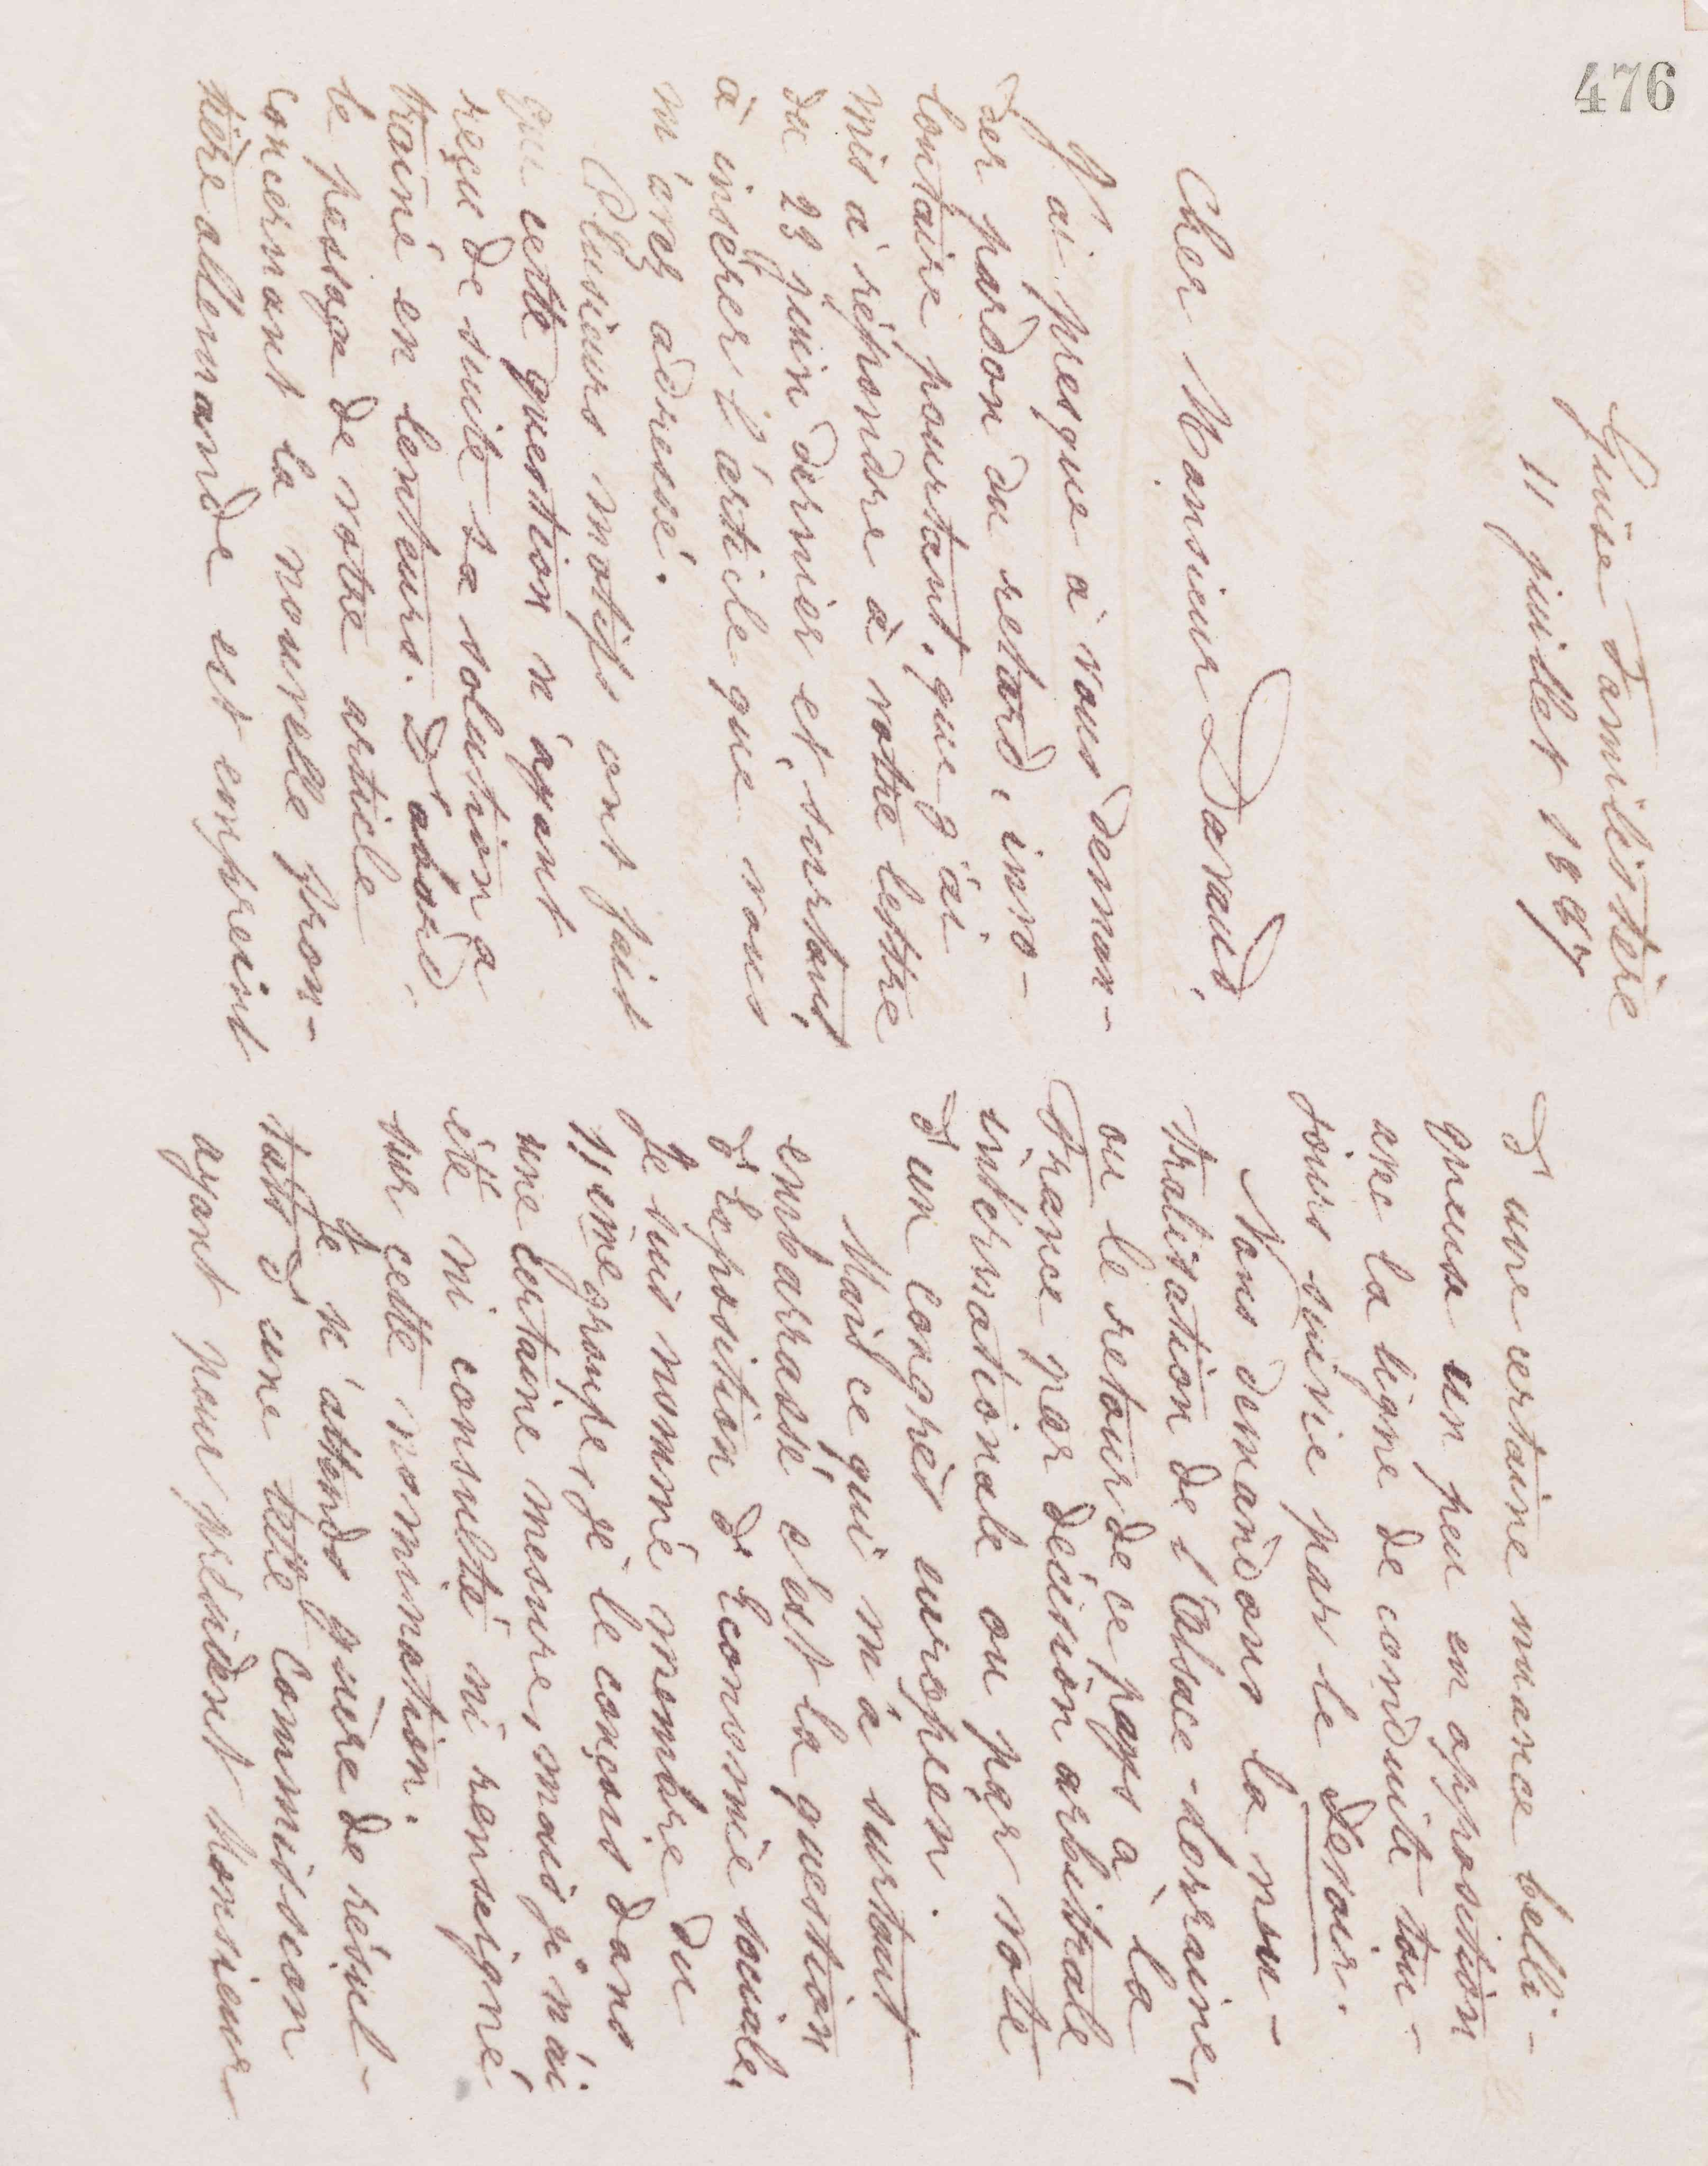 476
Guise Familistère
11 juillet 1887
Cher Monsieur Davaud,
J'ai presque à vous deman-
der pardon du retard, invo-
lontaire pourtant, que j'ai
mis à répondre à votre lettre
du 23 juin dernier et, surtout,
à insérer l'article que vous
m'avez adressé.
Plusieurs motifs ont fait
que cette question n'ayant
reçu de suite sa solution a
trainé en lenteurs. D'abord,
le passage de votre article
concernant la nouvelle fron-
tière allemande est empreint
d'une certaine nuance belli-
queuse un peu en opposition
avec la ligne de conduite tou-
jours suivie par le Devoir.
Nous demandons la neu-
tralisation de l'Alsace-Lorraine,
ou le retour de ce pays à la
France par décision arbitrale
internationale ou par vote
d'un congrès européen.
Mais ce qui m'a surtout
embarrassé c'est la question
d'Exposition d'Economie sociale.
Je suis nommé membre du
11ème groupe, je le conçois dans
une certaine mesure, mais je n'ai
été ni consulté ni renseigné
sur cette nomination.
Je n'attends guère de résul-
tats d'une telle Commission
ayant pour président Monsieur